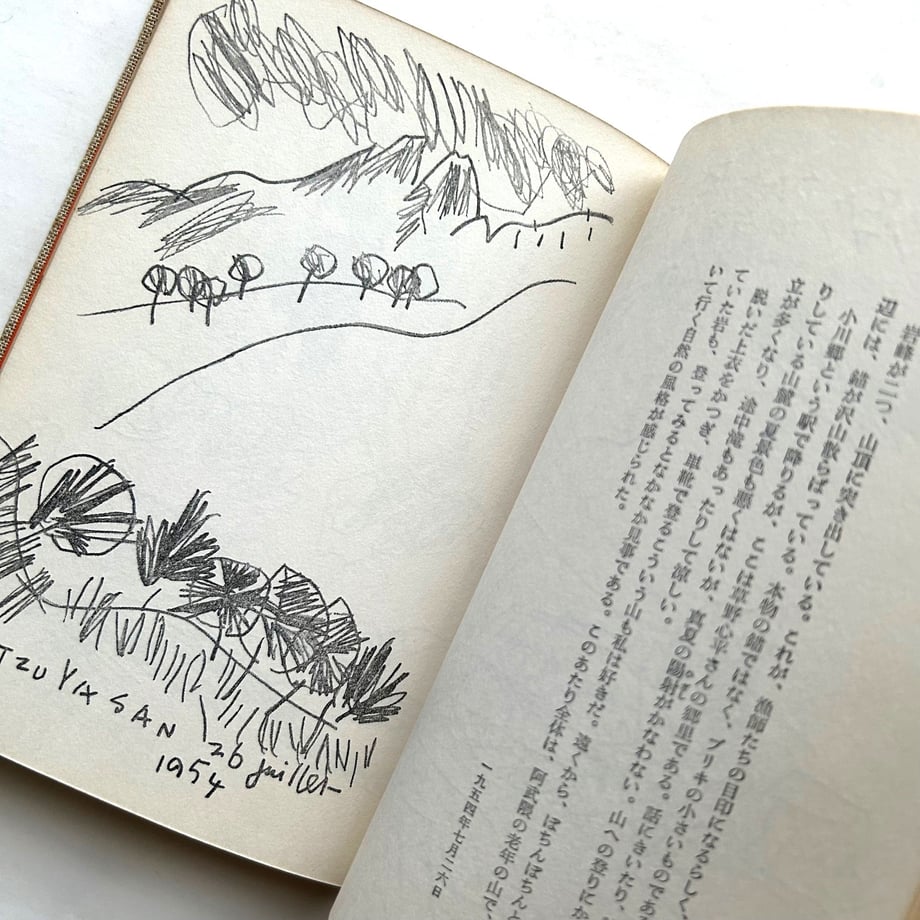 TZUYA SAN
26 juillet
1954
岩峰が二つ、山頂に突き出している。これが、漁師たちの目印になるらしく、
辺には、錨が沢山散らばっている。本物の錨ではなく、ブリキの小さいものであ
小川郷という駅で降りるが、ここは草野心平さんの郷里である。話にきいたり、
りしている山麓の夏景色も悪くはないが、真夏の陽射がかなわない。山への登りにか
立が多くなり、途中滝もあったりして涼しい。
脱いだ上衣をかつぎ、単靴で登るこういう山も私は好きだ。遠くから、ぽちんぽちんと
ていた岩も、登ってみるとなかなか見事である。このあたり全体は、阿武隈の老年の山で、
いて行く自然の風格が感じられた。
一九五四年七月二六日